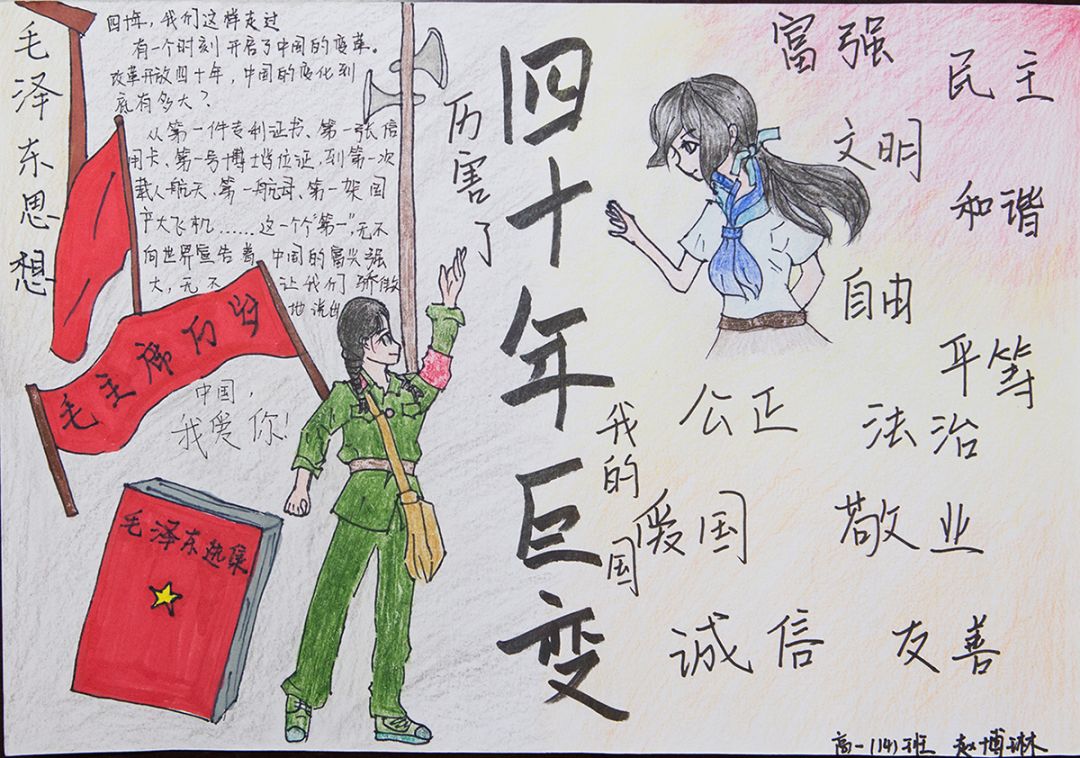 毛泽东思想
四十年，我们这样走过
有一个时刻开启了中国的变革。
改革开放四十年，中国的变化到
底有多大？
从第一件专利证书、第一张信
用卡、第一号博士学位证，到第一次
载人航天、第一航母、第一架国
产大飞机……这一个个“第一”，无不
向世界宣告着中国的富强
大，无不 让我们骄傲
地说出
毛主席万岁
中国，
我爱你！
毛泽东选集
厉害了
我的国
四十年巨变
富强
民主
文明
和谐
自由
平等
公正
法治
爱国
敬业
诚信
友善
高一(14)班 赵博琳